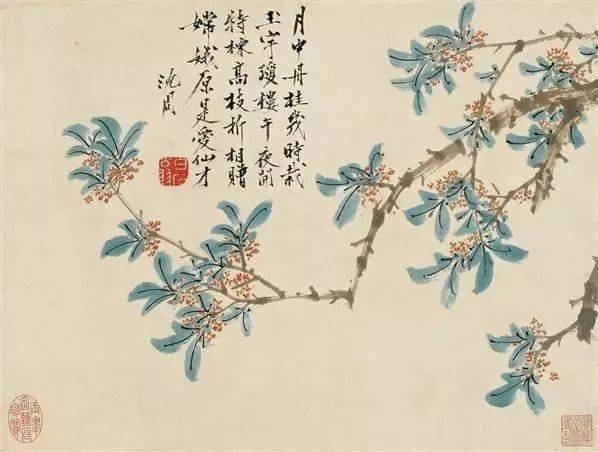 月中丹桂幾時栽
玉宇瓊樓午夜開
特楝高枝折相贈
嫦娥原是愛仙才
沈周